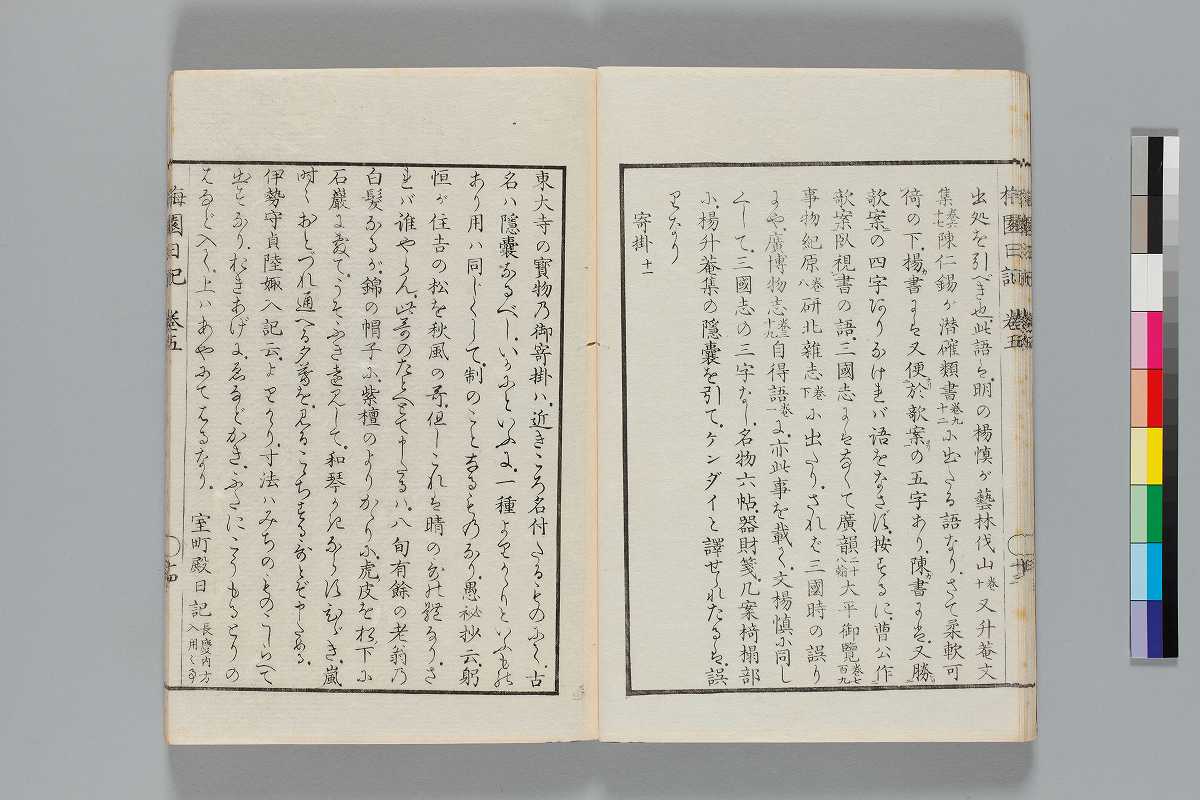 出処を引べき也此語は明の楊慎が藝林伐山巻十又升菴文
集巻六十七陳仁錫が潜確類書巻九十二に出たる語なりさて柔軟可
倚の下楊書には又便於欹案の五字あり陳書には又勝
欹案の四字ありなければ語をなさず按ずるに曹公作
欹案臥視書の語三國志にはなくて廣韻二十八翰大平御覧巻七百九
事物紀原巻八研北雜志巻下に出たりされば三國時の誤り
にや廣博物志巻三十九自得語巻一に亦此事を載く文楊慎に同じ
くして三國志の三字なし名物六帖器財箋几案椅榻部
に楊升菴集の隠囊を引てケンダイと譯せられたるは誤
りなり
寄掛十一
東大寺の寳物乃御寄掛は近きころ名付たるものにて古
名は隠囊なるべしいかにといふに一種よりかゝりといふもの
あり用は同じくして制のことなるものなり愚秘抄云躬
恒が住吉の松を秋風の哥但しこれは晴の哥の躰なりさ
れば誰やらん此哥のたとへとて申たるは八旬有餘の老翁乃
白髪なるが錦の帽子に紫檀のよりかゝりに虎皮を松下に
石巌に敷てうそふき遠見して和琴かきならしむゞき嵐
時々おとづれ通へる夕暮を見るこゝちするなどぞ申ためる
伊勢守貞陸娵入記云よりかゝり寸法はみちのものこしらへて
出すなりむきあげにゑなどかきふたにこうもるとりの
はねなど入てく上はあやにてはるなり室町殿日記長慶内方入用くゝ
梅園日記 巻五
梅園日記 巻五 十四